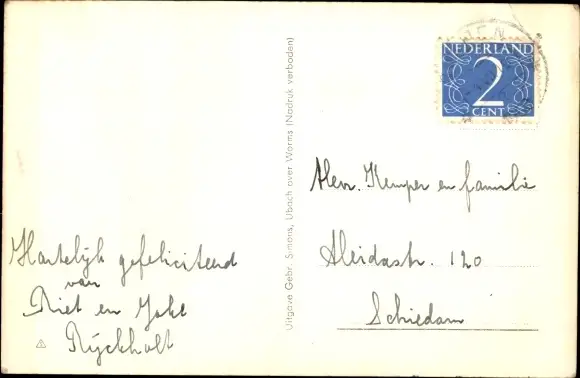 NEDERLAND
2
CENT
Uitgave Gebr. Simons, Ubach over Worms (Nadruk verboden)
Hev. Kemper en familie
Aleidastr. 120
Schiedam
Hartelijk gefeliciteerd
van
Riet en
Rijckholt